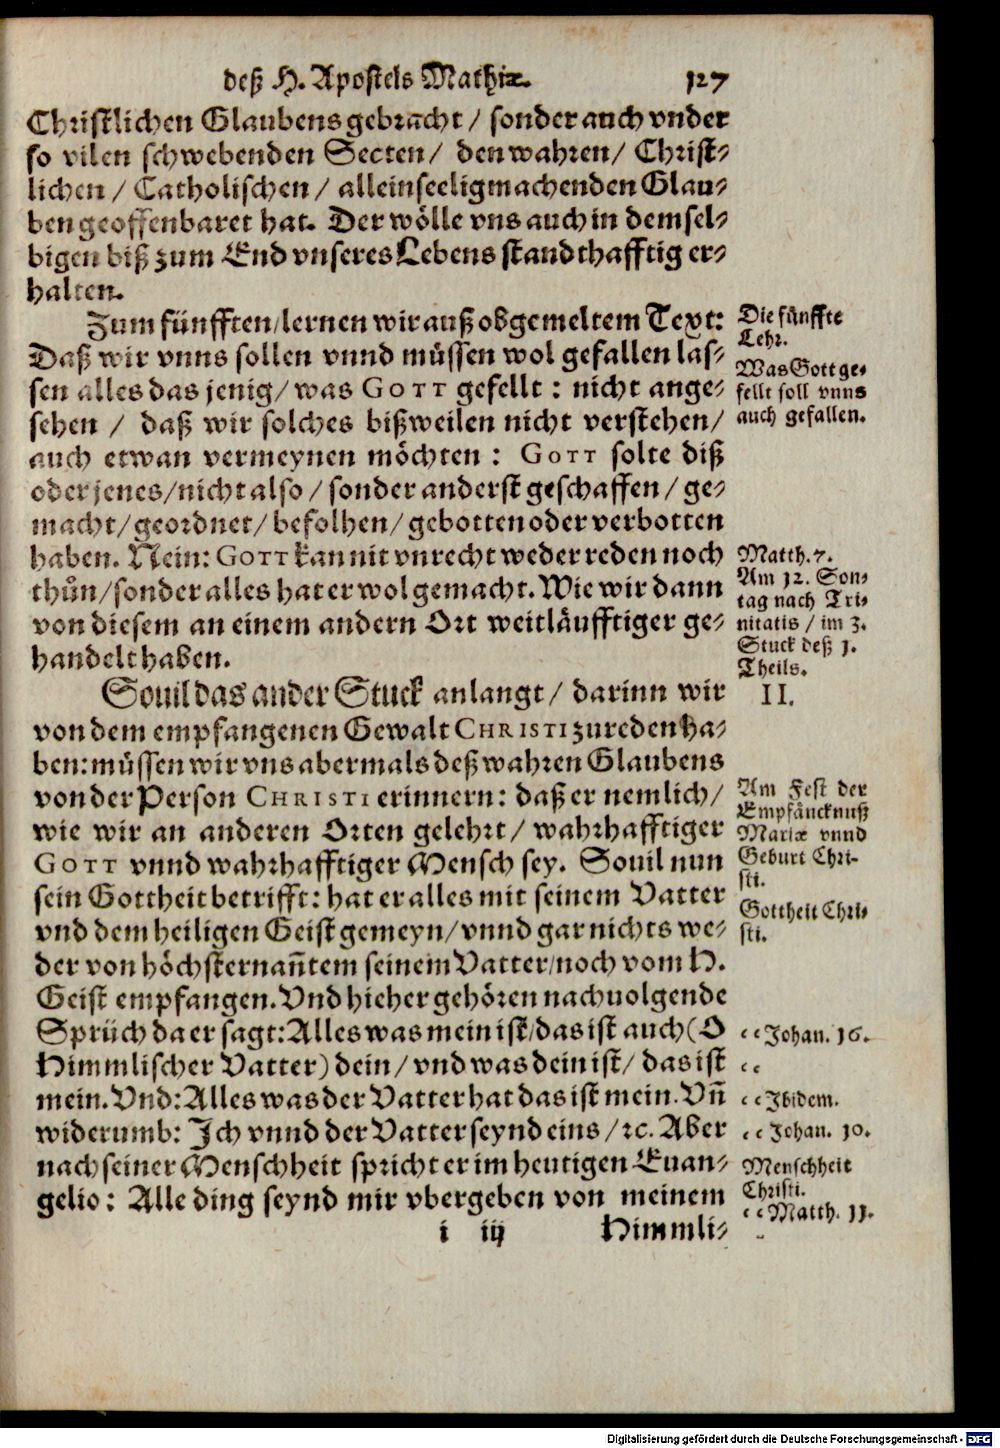 deß H. Apostels Mathiæ. 127
Christlichen Glaubens gebracht / sonder auch vnder
so vilen schwebenden Secten / den wahren / Christ-
lichen / Catholischen / alleinseeligmachenden Glau-
ben geoffenbaret hat. Der wölle vns auch in demsel-
bigen biß zum End vnseres Lebens standthafftig er-
halten.
Zum fünfften / lernen wir auß obgemeltem Text:
Daß wir vnns sollen vnnd müssen wol gefallen las-
sen alles das jenig / was GOTT gefellt : nicht ange-
sehen / daß wir solches bißweilen nicht verstehen /
auch etwan vermeynen möchten : GOTT solte diß
oder jenes / nicht also / sonder anderst geschaffen / ge-
macht / geordnet / befolhen / gebotten oder verbotten
haben. Nein: GOTT kan nit vnrecht weder reden noch
thůn / sonder alles hat er wol gemacht. Wie wir dann
von diesem an einem andern Ort weitläufftiger ge-
handelt haben.
Souil das ander Stuck anlangt / darinn wir
von dem empfangenen Gewalt CHRISTI zureden ha-
ben: müssen wir vns abermals deß wahren Glaubens
von der Person CHRISTI erinnern: daß er nemlich /
wie wir an anderen Orten gelehrt / wahrhafftiger
GOTT vnnd wahrhafftiger Mensch sey. Souil nun
sein Gottheit betrifft: hat er alles mit seinem Vatter
vnd dem heiligen Geist gemeyn / vnnd gar nichts we-
der von höchsternan̄tem seinem Vatter / noch vom H.
Geist empfangen. Vnd hieher gehören nachuolgende
Sprüch da er sagt: Alles was mein ist / das ist auch (O
Himmlischer Vatter) dein / vnd was dein ist / das ist
mein. Vnd: Alles was der Vatter hat das ist mein. Vn̄
widerumb: Ich vnnd der Vatter seynd eins / ꝛc. Aber
nach seiner Menschheit spricht er im heutigen Euan-
gelio : Alle ding seynd mir vbergeben von meinem
i iij Himmli-
Die fünffte
Lehr.
Was Gott ge-
fellt soll vnns
auch gefallen.
Matth. 7.
Am 12. Son-
tag nach Tri-
nitatis / im 3.
Stuck deß 1.
Theils.
II.
Am Fest der
Empfäncknuß
Mariæ vnnd
Geburt Chri-
sti.
Gottheit Chri-
sti.
“ Johan. 16.
“
“ Ibidem.
“ Johan. 10.
Menschheit
Christi.
“ Matth. 11.
Digitalisierung gefördert durch die Deutsche Forschungsgemeinschaft - DFG